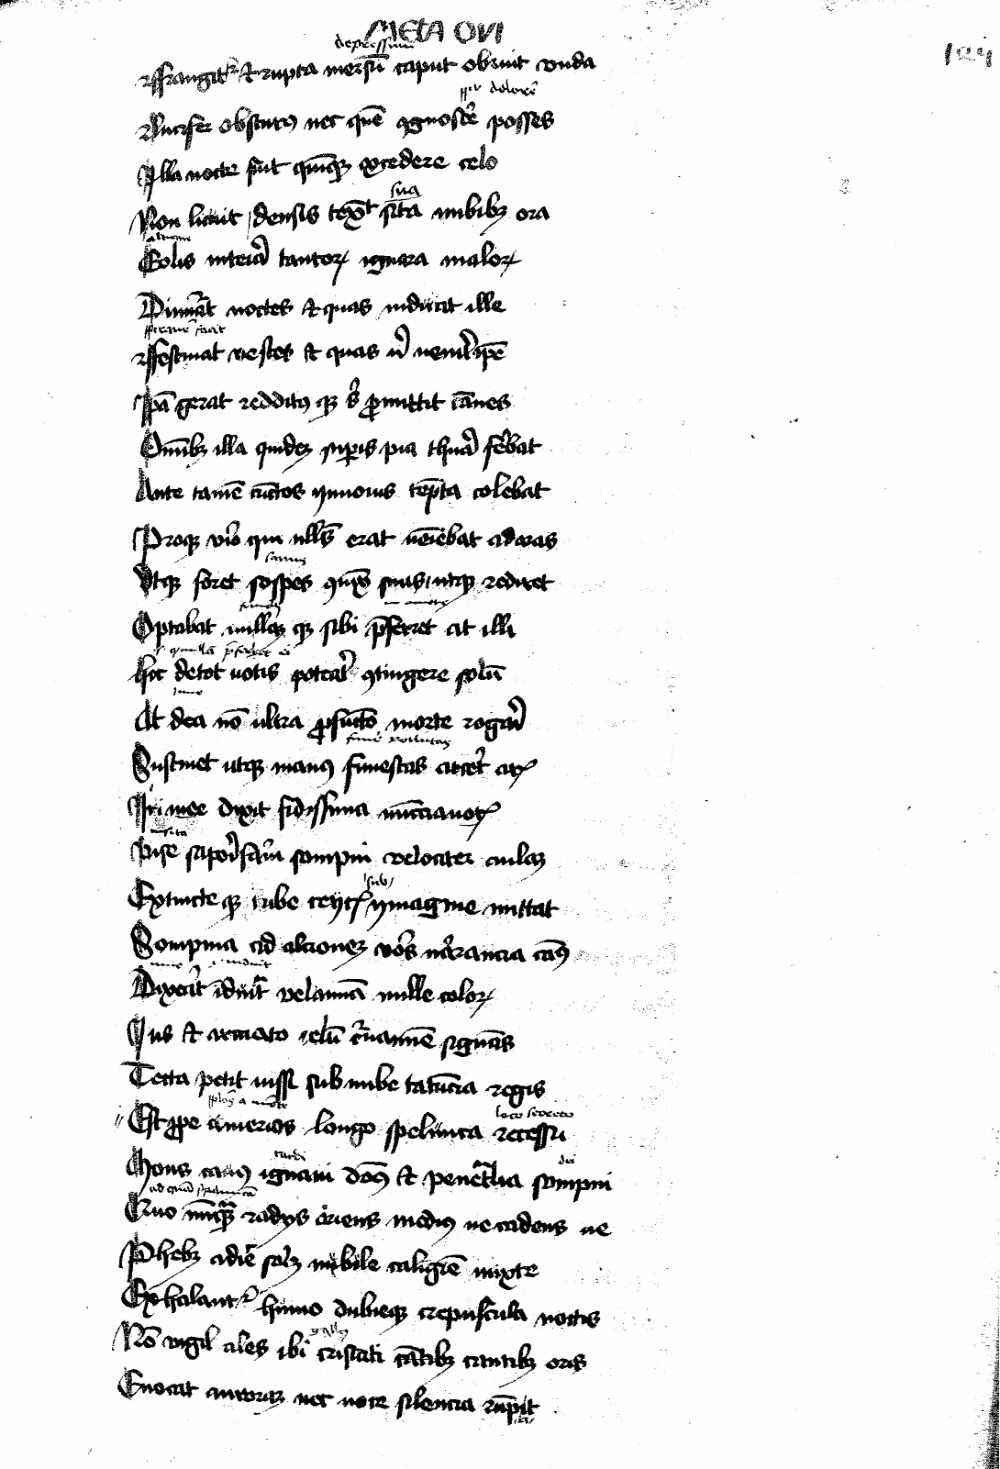 META OVI
depressum
Frangitur et rupta mersum caput obruit unda
pre dolore
Lucifer obscurus nec quem cognoscere posses
Illa nocte fuit quoniamque excedere celo
sua
Non licuit densis texit sita nubibus ora
Eolis interea tantorum ignara malorum
Dinumerat noctes et quas induat ille
Festinat vestes et quas ubi venerit ipse
Ipsa gerat redditusque sibi promittit inanes
Omnibus illa quidem superis pia thura ferebat
Ante tamen cunctos iunonis templa colebat
Proque viro qui nullus erat veniebat ad aras
Utque foret sospes coniunx suus utque rediret
Optabat nullamque sibi preferret at illi
Hoc de tot votis poterat contingere solum
At dea non ultra pro functo morte rogari
Sustinet utque manus funestas arceret aris
Iri mee dixit fidissima nuncia vocis
Vise soporiferam sompni velociter aulam
sub
Extincteque iube ceycis ymagine mittat
Sompnia ad alcionem veros narrancia casus
Dixerat induitur velamina mille colorum
Iris et arcuato celum curvamine signans
Tecta petit iussi sub nube latencia regis
loco secreto
Est prope cimerios longo spelunca recessu
Mons cavus ignavi domus et penetralia sompni
Quo nunquam radiis oriens medius ve cadens ve
Phebus adire potest nebule caligine mixte
Exhalantur humo dubieque crepuscula noctis
Non vigil ales ibi cristati cantibus oris
Evocat auroram nec voce silencia rumpit